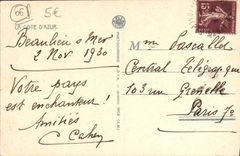 66
5€
LA COTE D'AZUR
Beaulieu s Mer
2 Nov 1930
Votre pays
est enchanteur!
Amitiés
C Cahen
Mme Pascallod
Central Télégraphique
103 rue Grenelle
Paris 7e